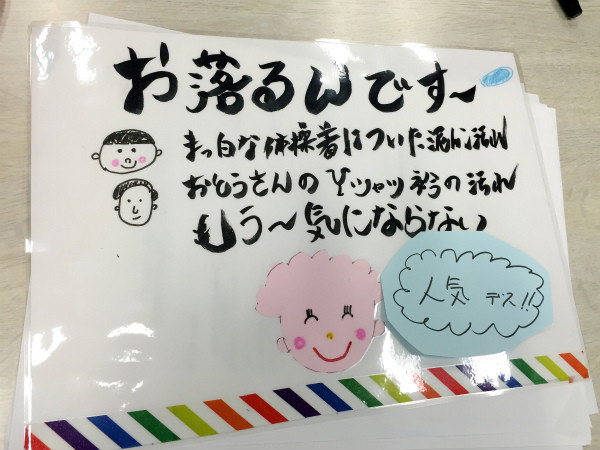 お落るんです~
まっ白な体操着についた泥んこ汚れ
おとうさんのYシャツ衿の汚れ
もう~気にならない
人気デス!!